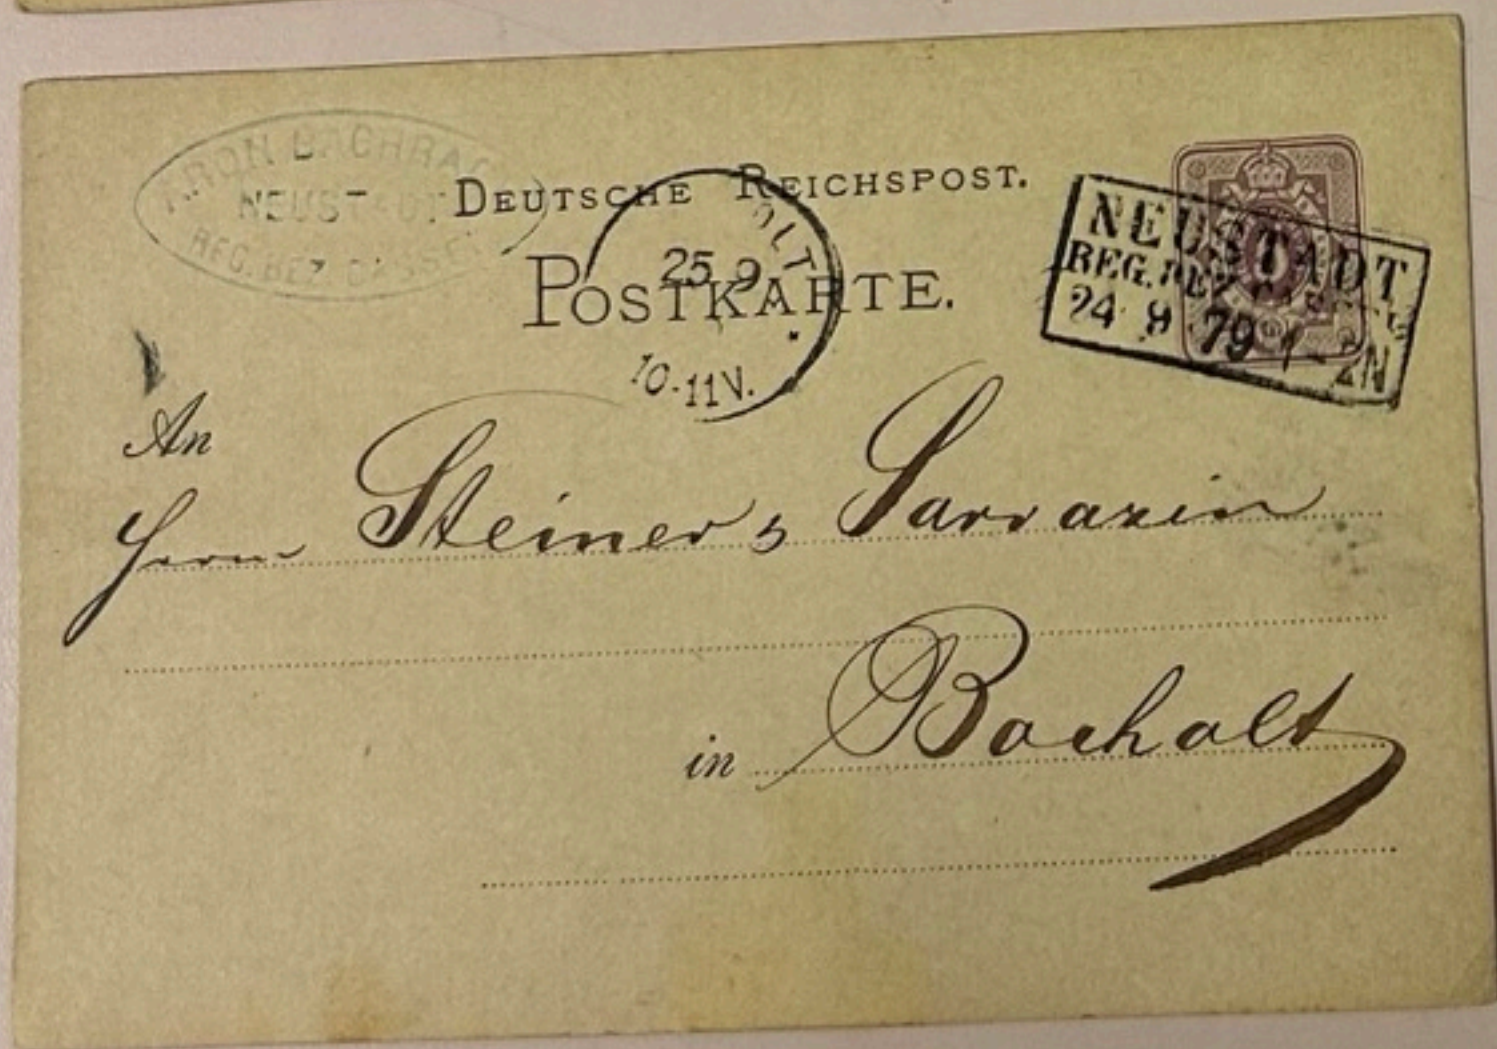 ARON BACHRACH
NEUSTADT
REG. BEZ. CASSEL
DEUTSCHE REICHSPOST.
POSTKARTE.
OLT
25 9
10-11V.
NEUSTADT
REG. BEZ. CASSEL
24 9 79 1-2N
An
Herrn Steiner & Sarrazin
in Bocholt